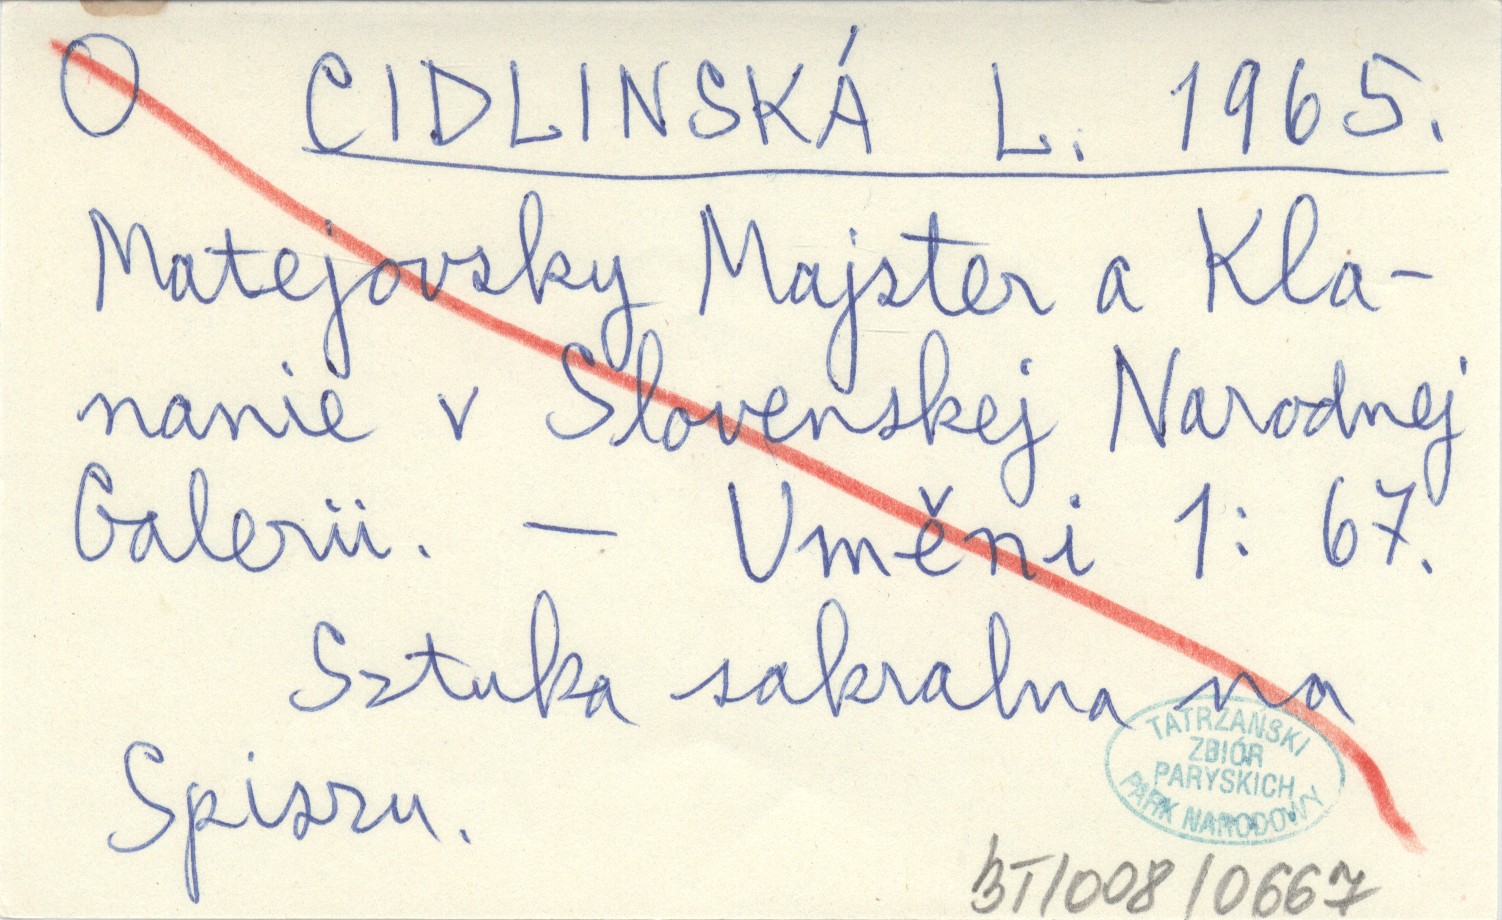 O CIDLINSKÁ L. 1965.
Matejovsky Majster a Kla-
nanie v Slovenskej Narodnej
Galerii. — Uměni 1: 67.
Sztuka sakralna na
Spiszu.
TATRZAŃSKI
ZBIÓR
PARYSKICH
PARK NARODOWY
BT/008/0667